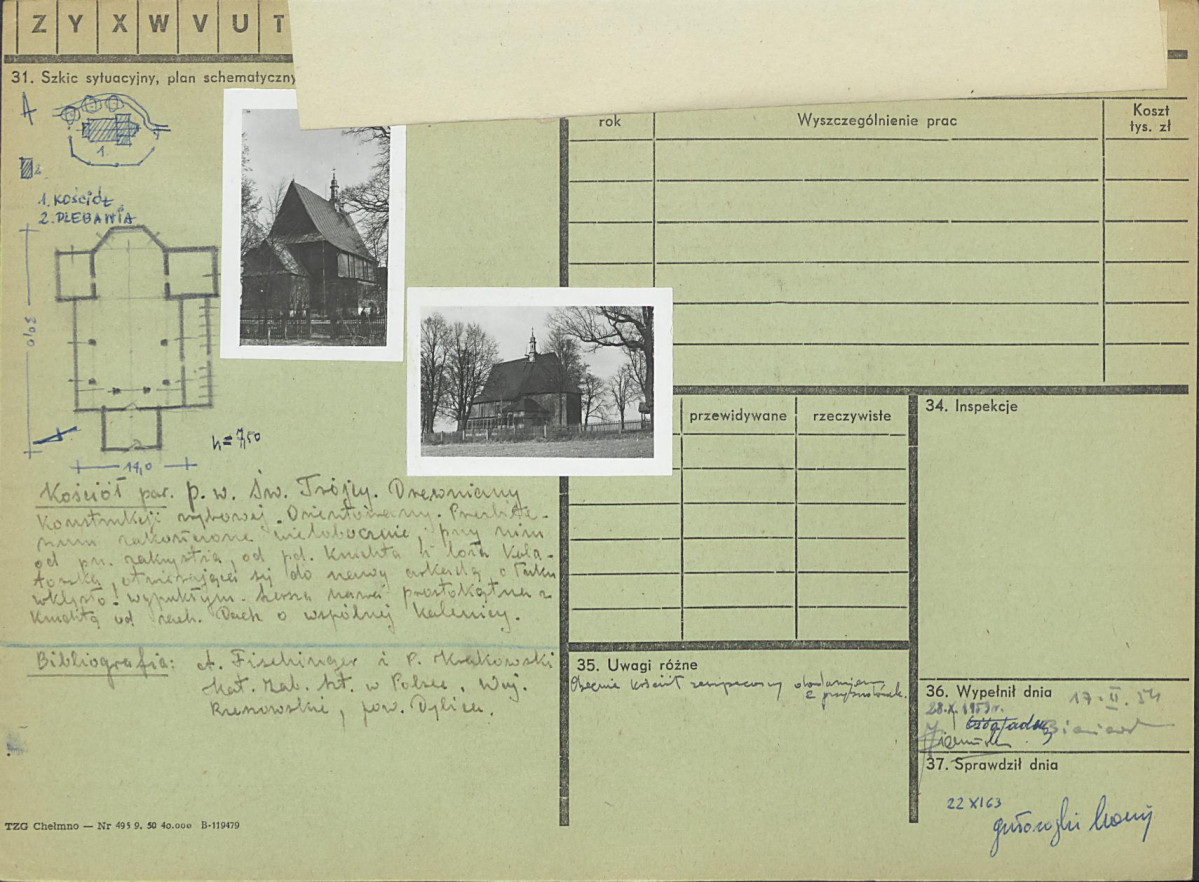 Z Y X W V U T
31. Szkic sytuacyjny, plan schematyczny
1.
2.
1. KOŚCIÓŁ
2. PLEBANIA
30,0
14,0
h = 7,50
Kościół par. p. w. Św. Trójcy. Drewniany
Konstrukcji zrębowej. Orientowany. Prezbite-
rium zakończone wielobocznie, przy nim
od pn. zakrystia, od pd. kruchta z lożą kola-
torską, otwierającą się do nawy arkadą o łuku
wklęsło-wypukłym. Szersza nawa prostokątna z
kruchtą od zach. Dach o wspólnej kalenicy.
Bibliografia: A. Fischinger i P. Krakowski
Kat. Zab. Szt. w Polsce, Woj.
Rzeszowskie, pow. Dębica.
TZG Chełmno — Nr 495 9. 50 40.000 B-119479
rok
Wyszczególnienie prac
Koszt
tys. zł
przewidywane
rzeczywiste
34. Inspekcje
35. Uwagi różne
Obecnie kościół
36. Wypełnił dnia
17. II. 54
28.X.1959r.
37. Sprawdził dnia
22 XI 63